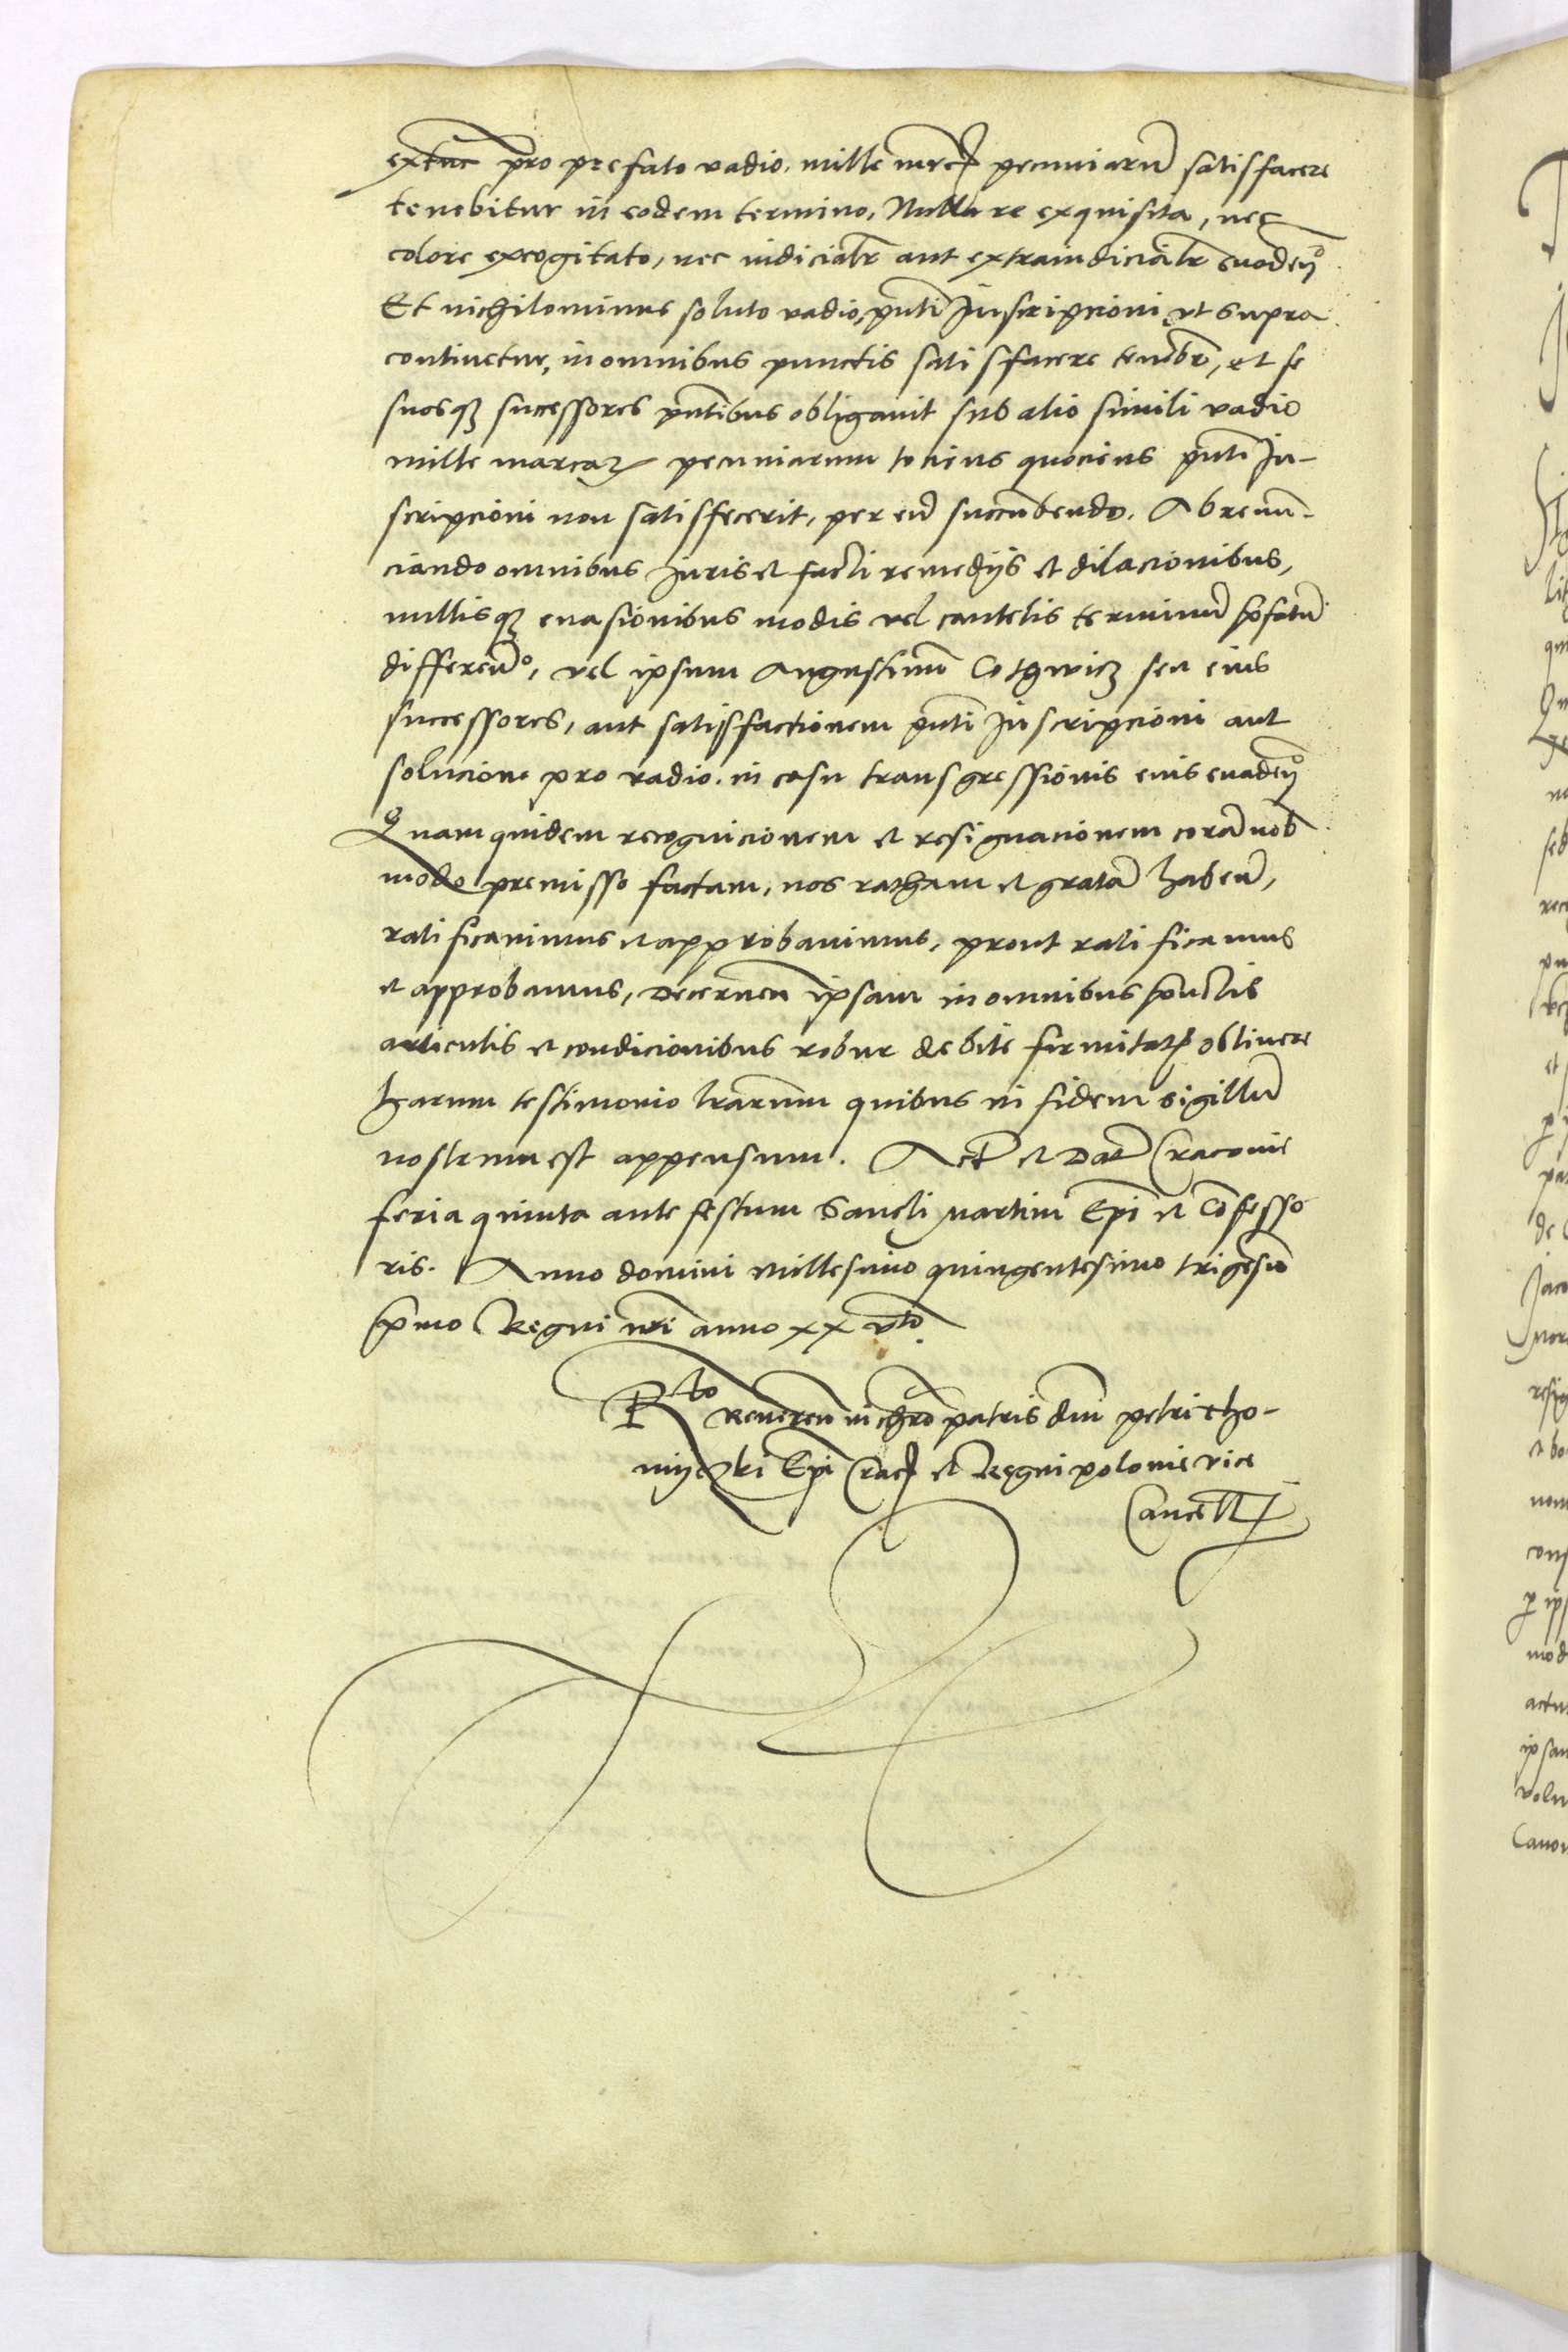 extunc pro prefato vadio, mille mrcs pecuniarũ satisfacere
tenebitur in eodem termino, Nulla re exquisita, nec
colore excogitato, nec iudicialr̃ aut extraiudicialr̃ euadenº
Et nichilominus soluto vadio, pñti Inscripcioni, vt supra
continetur, in omnibus punctis satisfacere tenebr̃, et se
suosqꝫ successores pñtibus obligauit sub alio simili vadio
mille marcaꝝ pecuniarum tociens quociens pñti In-
scripcioni non satisfecerit, per eũ succũbendo. Abrenun-
ciando omnibus Iuris et facti remedijs et dilacionibus,
nullisqꝫ euasionibus modis vel cautelis terminũ p̃fatũ
differenº, vel ipsum Augustinũ Cothwicz seu eius
successores, aut satisfactionem pñti Inscripcioni aut
solucione pro vadio, in casu transgressionis euis euadenº
Quamquidem recognicionem et resignacionem corã nob
modo premisso factam, nos ratham et gratã habeñ,
ratificauimus et approbauimus, prout ratificamus
et approbamus, Decerneñ ipsam in omnibus pũctis
articulis et condicionibus robur debite firmitatꝭ obtinere
harum testimonio lrãrum quibus in fidem sigillũ
nostrum est appensum. Act̃ et Dat̃ Cracouie
feria quinta ante festum Sancti Martini Ep̃i et Cõfesso
ris. Anno domini Millesimo quingentesimo trigesiõ
p̃mo Regni nr̃i anno xxvto
Rto Reuereñ in chrõ patris dñi Petri tho-
miczki Ep̃i Crac et Regni polonie vice
Cancell